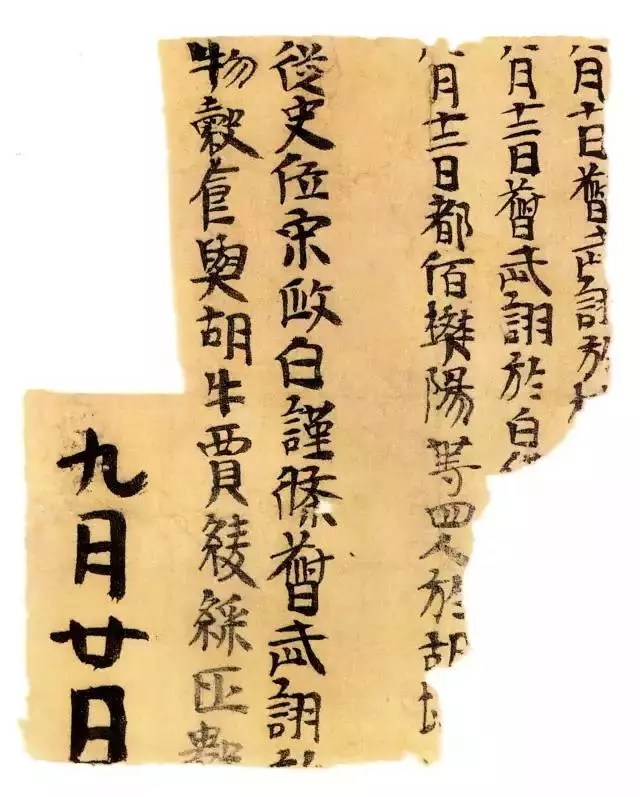 月十日武詡於
月十二日武詡於白
月十三日都佰樊陽等四人於胡
從史位宋政白謹條武詡
物穀食與胡牛賈綾綵匹數
九月廿日